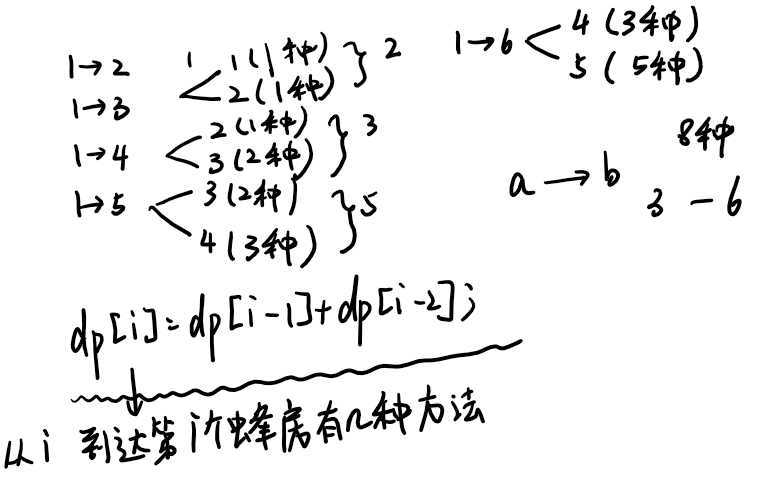 1→2 1
1→3 < 1(1种) 2(1种) } 2
1→4 < 2(1种) 3(2种) } 3
1→5 < 3(2种) 4(3种) } 5
1→6 < 4(3种) 5(5种)
8种
a→b 3-6
dp[i]=dp[i-1]+dp[i-2];
从i 到达第i个蜂房有几种方法